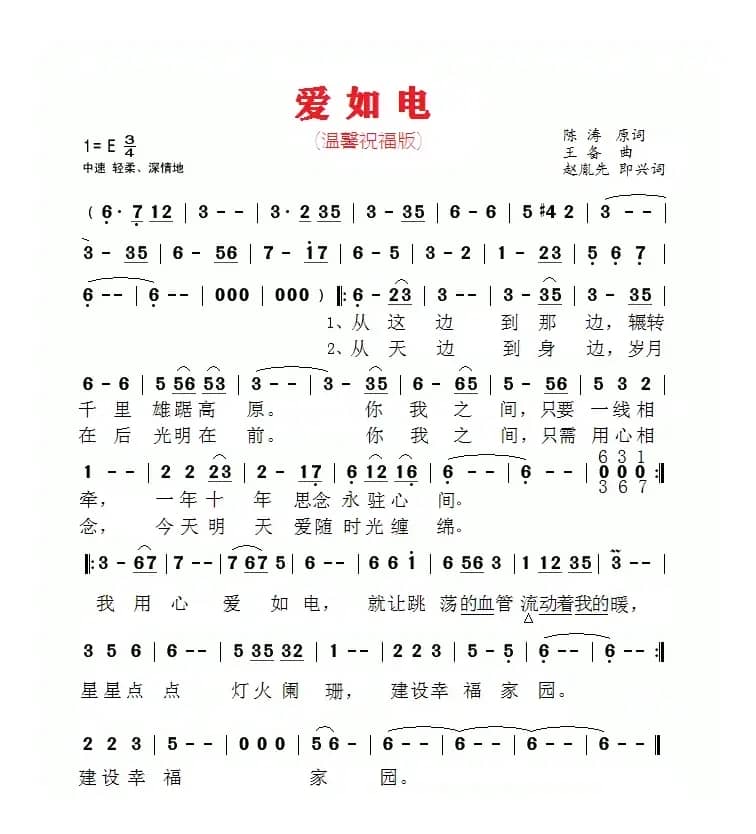 爱如电
(温馨祝福版)
1= E 3/4
中速 轻柔、深情地
陈涛 原词
王备 曲
赵胤先 即兴词
( 6· 7 12 | 3 - - | 3· 2 35 | 3 - 35 | 6 - 6 | 5 #4 2 | 3 - - |
3 - 35 | 6 - 56 | 7 - 17 | 6 - 5 | 3 - 2 | 1 - 23 | 5 6 7 |
6 - - | 6 - - | 000 | 000 ) |: 6 - 23 | 3 - - | 3 - 35 | 3 - 35 |
1、从这边 到那边,辗转
2、从天边 到身边,岁月
6 - 6 | 5 56 53 | 3 - - | 3 - 35 | 6 - 65 | 5 - 56 | 5 3 2 |
千里 雄踞高 原。 你我之 间,只要 一线相
在后 光明在 前。 你我之 间,只需 用心相
1 - - | 2 2 23 | 2 - 17 | 6 12 16 | 6 - - | 6 - - | 0 0 0 :|
6 3 1
3 6 7
牵, 一年十 年 思念 永驻心 间。
念, 今天明 天 爱随 时光缠 绵。
|: 3 - 67 | 7 - - | 7 67 5 | 6 - - | 6 6 1 | 6 56 3 | 1 12 35 | 3 - - |
我用心 爱如电, 就让跳 荡的血管 流动着我的暖,
3 5 6 | 6 - - | 5 35 32 | 1 - - | 2 2 3 | 5 - 5 | 6 - - | 6 - - :|
星星点 点 灯火阑 珊, 建设幸 福家 园。
2 2 3 | 5 - - | 0 0 0 | 5 6 - | 6 - - | 6 - - | 6 - - | 6 - - ‖
建设幸 福 家 园。